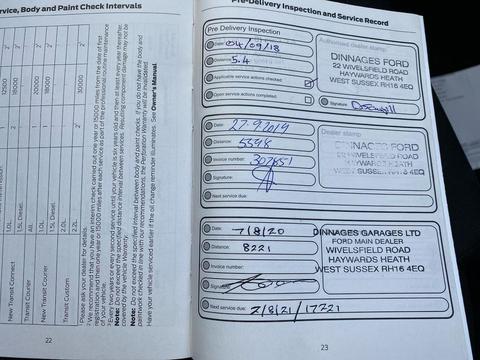 rvice, Body and Paint Check Intervals
12500
2¹
18000
2¹
20000
2¹
18000
2¹
30000
2¹
2
2
1.0L
1.5L Diesel.
All
1.0L
1.5L Diesel.
2.0L
2.2L
New Transit Connect
Transit Courier
New Transit Courier
Transit Custom
Please ask your dealer for details.
We recommend that you have an interim check carried out one year or 15000 miles from the date of first
registration and then one year or 15000 miles after each service as part of the professional routine maintenance
of your vehicle.
Every two years or every second service until your vehicle is six years old and then at least every year thereafter.
Note: Do not exceed the specified distance interval between services. Resulting component damage may not be
covered by the vehicle Warranty.
Note: Do not exceed the specified interval between body and paint checks. If you do not have the body and
paintwork checked in line with our recommendations, the Perforation Warranty will be invalidated.
Have your vehicle serviced earlier if the oil change reminder illuminates. See Owner's Manual.
22
Pre-Delivery Inspection and Service Record
Pre Delivery Inspection
Date: 04/09/18
Distance: 5.4
Applicable service actions checked:
Open service actions completed:
Authorised dealer stamp:
DINNAGES FORD
22 WIVELSFIELD ROAD
HAYWARDS HEATH
WEST SUSSEX RH16 4EQ
Signature:
Date: 27-9-2019
Distance: 5598
Invoice number: 302651
Signature:
Next service due:
Dealer stamp
DINNAGES FORD
22 WIVELSFIELD ROAD
HAYWARDS HEATH
WEST SUSSEX RH16 4EQ
Date: 7/8/20
Distance: 8221
Invoice number:
Signature:
Next service due: 7/8/21/17221
DINNAGES GARAGES LTD
FORD MAIN DEALER
WIVELSFIELD ROAD
HAYWARDS HEATH
WEST SUSSEX RH16 4EQ
23